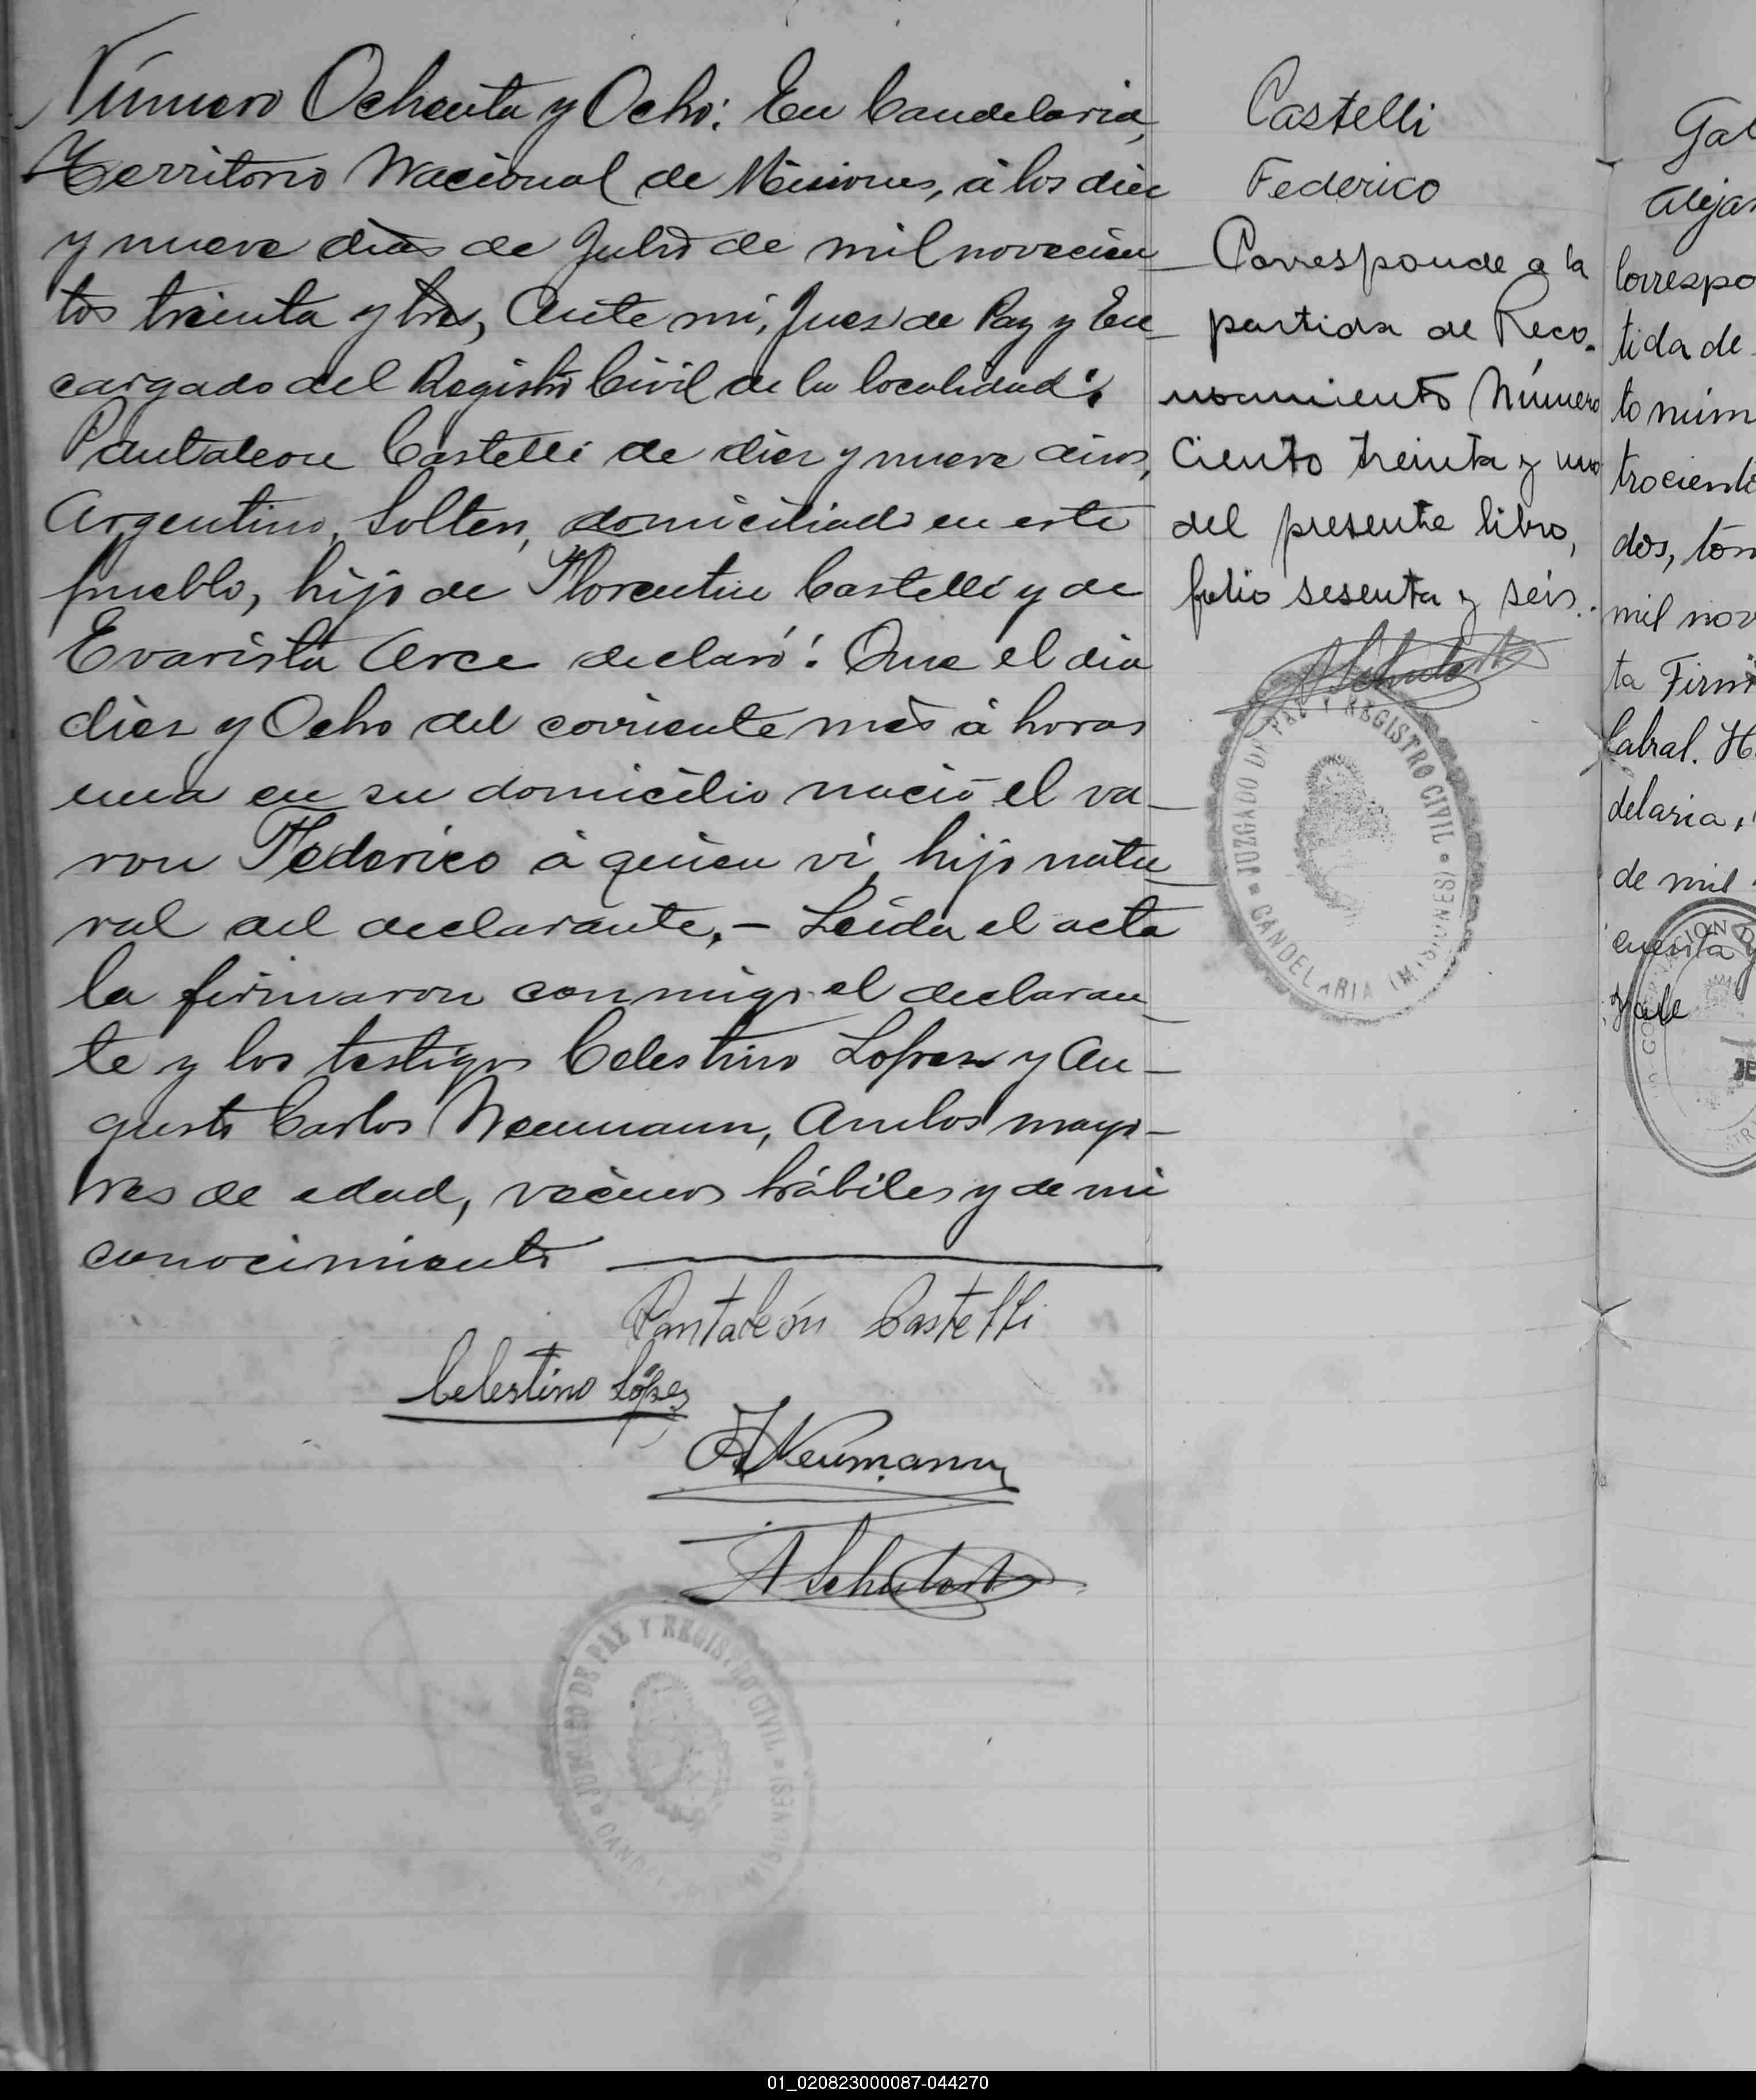 Número Ochenta y Ocho: En Candelaria,
Territorio Nacional de Misiones, á los diez
y nueve dias de Julio de mil novecien
tos treinta y tres, Ante mi, Juez de Paz y En
cargado del Registro Civil de la localidad:
Pantaleon Castelli de diez y nueve años,
Argentino, Solter, domiciliado en este
pueblo, hijo de Florentin Castelli y de
Evarista Arce declaró: Que el dia
diez y Ocho del corriente mes á horas
una en su domicilio nació el va-
ron Federico á quien vi, hijo natu
ral del declarante.- Leida el acta
la firmaron conmigo el declaran
te y los testigos Celestino Lopez y Au-
gusto Carlos Neumann, Ambos mayo-
res de edad, vecinos hábiles y de mi
conocimiento
Pantaleón Castelli
Celestino López
A Neumann
JUZGADO DE PAZ Y REGISTRO CIVIL
CANDELARIA (MISIONES)
Castelli
Federico
Corresponde a la
partida de Reco.
nocimiento Número
Ciento treinta y uno
del presente libro,
folio sesenta y seis.
JUZGADO DE PAZ Y REGISTRO CIVIL
CANDELARIA (MISIONES)
Gal
Alejan
Correspo
tida de
to núm
trocient
dos, tom
mil nov
ta Firm
Cabral. H
delaria,
de mil
cuenta y
01_020823000087-044270